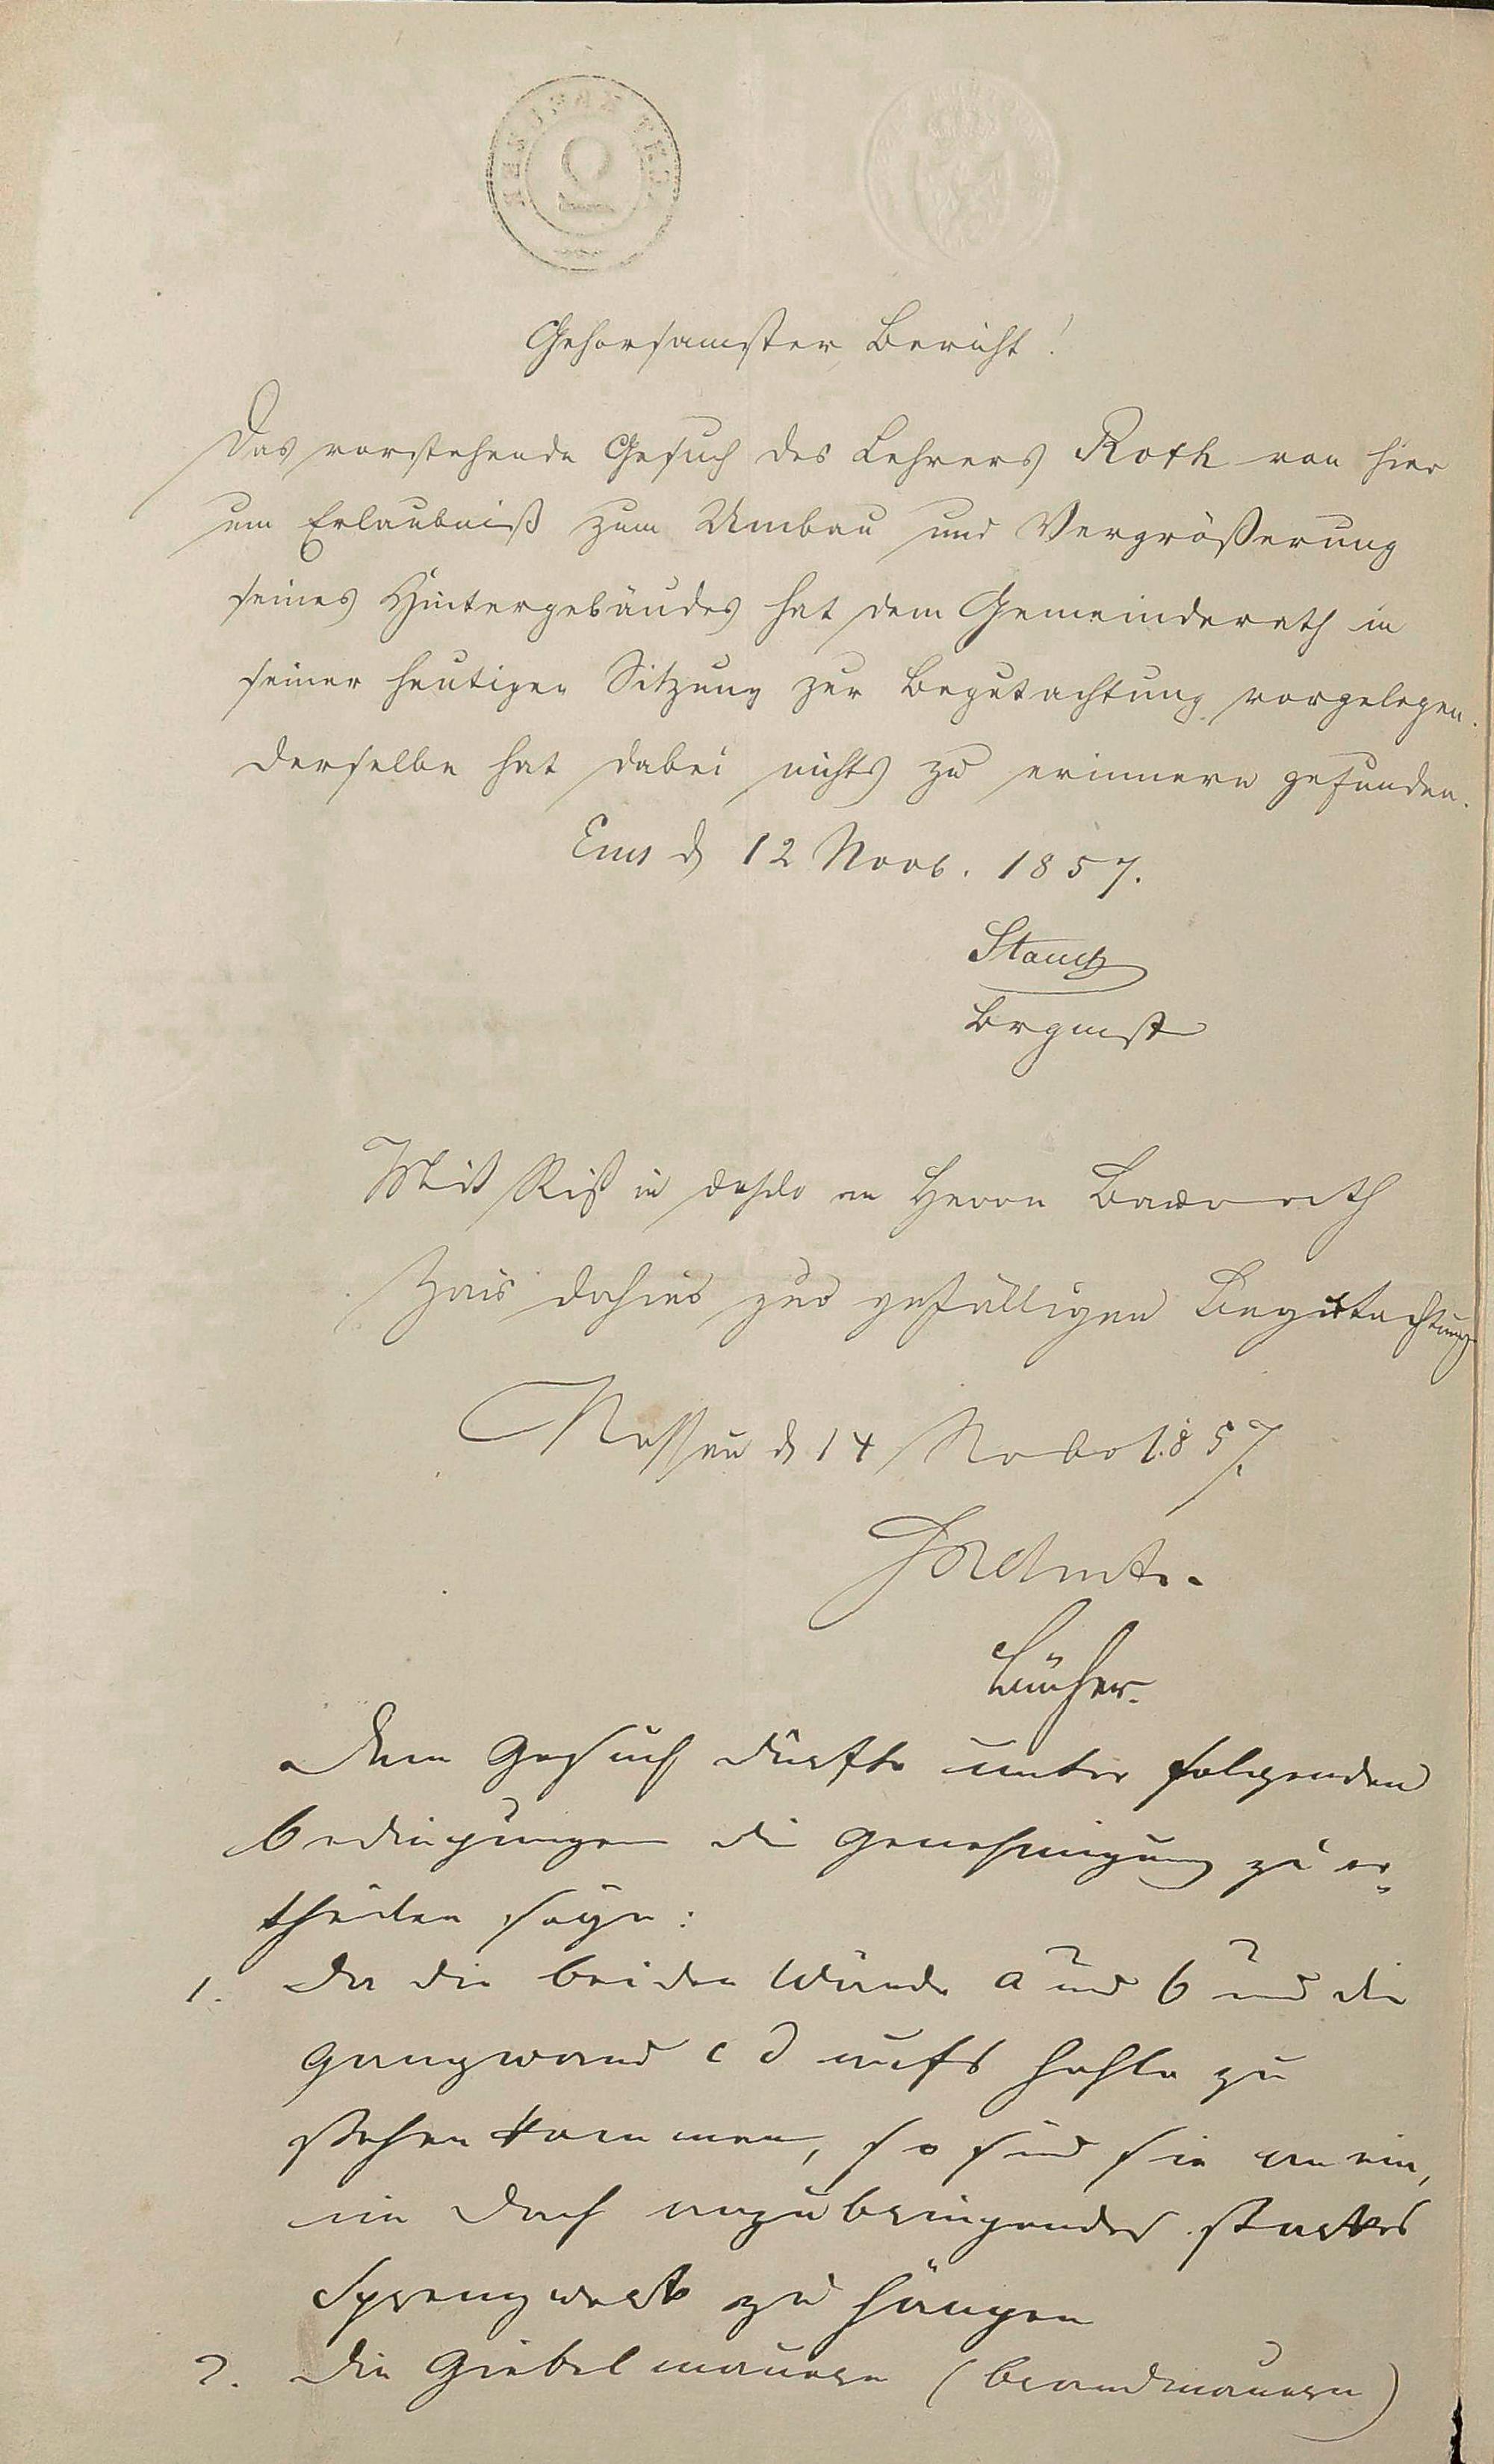 Gehorsamster Bericht!
Das vorstehende Gesuch des Lehrers Roth von hier
um Erlaubniß zum Umbau und Vergrößerung
seines Hintergebäudes hat dem Gemeinderath in
seiner heutigen Sitzung zur Begutachtung vorgelegen.
Derselbe hat dabei nichts zu erinnern gefunden.
Ems d 12 Novb. 1857.
Stauch
Brgmstr
Mit Riß in an Herrn Baurath
Zais dahier zur gefälligen Begutachtung
Nassau d 14 Novbr 1857.
Büsser.
Dem Gesuch dürfte unter folgenden
Bedingungen die Genehmigung zu er-
theilen seyn:
1. Da die beiden Wände a und b und die
Gangwand c d aufs Hohle zu
stehen kommen, so sind sie an ein,
im Dach anzubringendes starkes
Sprengwerk zu hängen
2. Die Giebelmauern (Brandmauern)